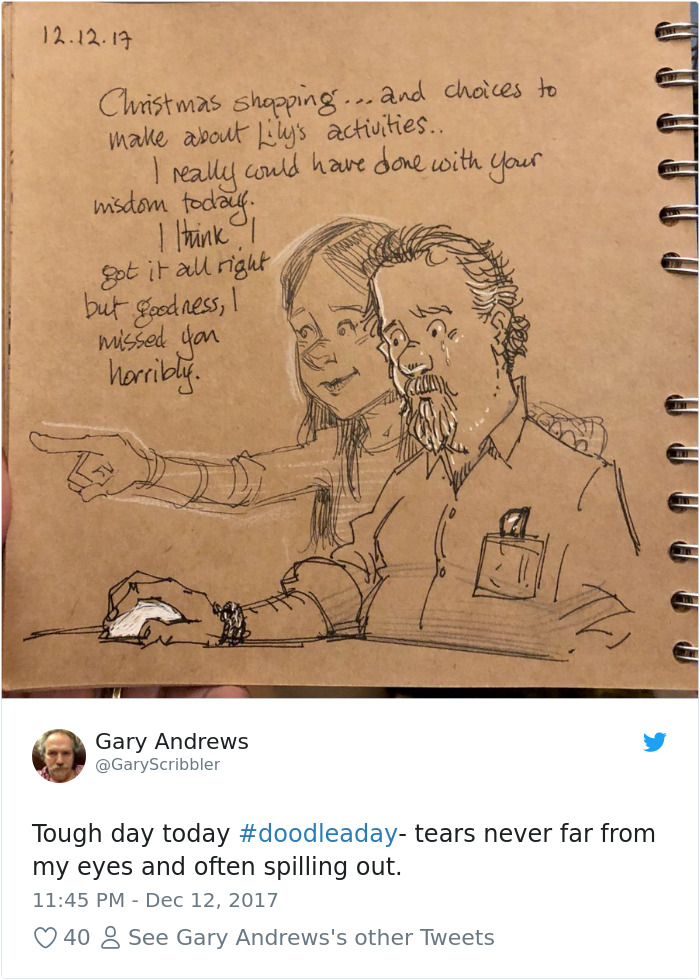 12.12.17
Christmas shopping... and choices to
make about Lily's activities..
I really could have done with your
wisdom today.
I think I
got it all right
but goodness, I
missed you
horribly.
Gary Andrews
@GaryScribbler
Tough day today #doodleaday- tears never far from
my eyes and often spilling out.
11:45 PM - Dec 12, 2017
40 See Gary Andrews's other Tweets